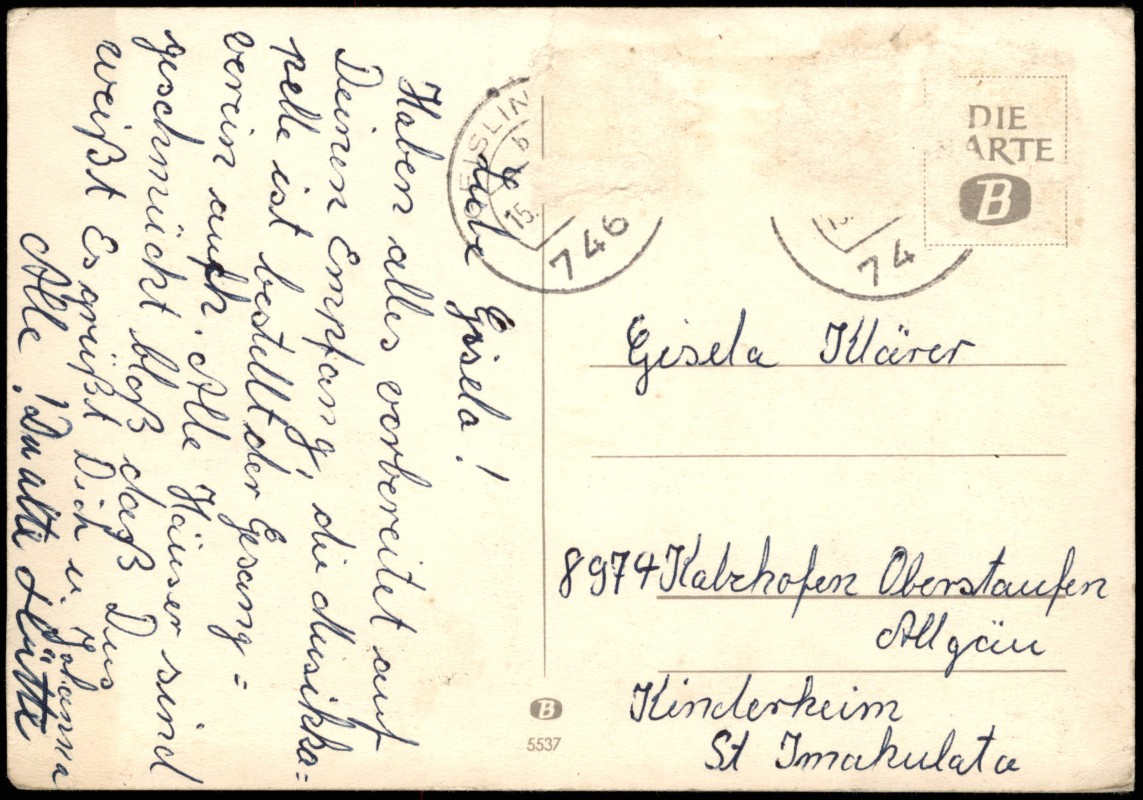 Liebe Gisela!
Haben alles vorbereitet auf
Deinen Empfang, die Musikka=
pelle ist bestellt der Gesang=
verein auch. Alle Häuser sind
geschmückt bloß daß Dus
weißt Es grüßt Dich u. Johanna
Alle! Du alte Hütte
EISLIN
15.
746
15
74
DIE
KARTE
B
Gisela Klärer
8974 Kalzhofen Oberstaufen
Allgäu
Kinderheim
St Imakulata
B
5537